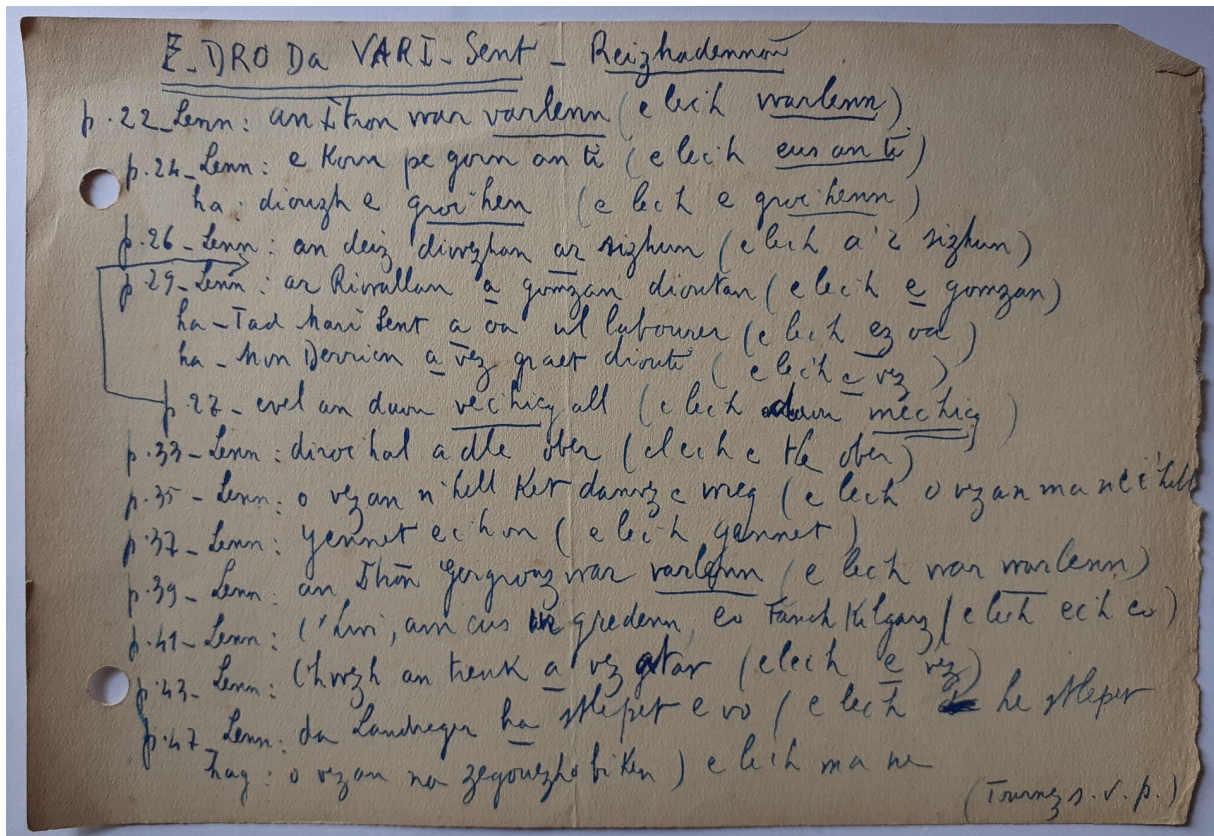 E-DRO Da VARI-Sent - Reizhadennoù
p.22_Lenn: an Itron war varlenn (e lec'h warlenn)
p.24_Lenn: e Korn pe gorn an ti (e lec'h eus an ti)
ha: diouzh e groc'hen (e lec'h e groc'henn)
p.26_Lenn: an deiz diwezhan ar sizhun (e lec'h a'z sizhun)
p.29_Lenn: ar Riwallan a gomzan dioutan (e lec'h e gomzan)
ha - Tad Mari Sent a oa ul labourer (e lec'h ez oa)
ha - Mon Derrien a vez graet diouti (e lec'h e vez)
p.27- evel an daou vec'hieg all (e lec'h daou mec'hieg)
p.33- Lenn: diroc'hal a dle ober (e lec'h e tle ober)
p.35 - Lenn: o vezan n'hell Ket danvez e wreg (e lec'h o vezan ma ne c'hell
p.37- Lenn: gennet ec'h on (e lec'h gannet)
p.39- Lenn: an Itron Gergrouz war varlenn (e lec'h war warlenn)
p.41- Lenn: C'hwi, am eus gredenn, eo Fanch Kilgarz (e lec'h ec'h eo)
p.43- Lenn: C'hwezh an trenk a vez gtav (e lec'h e vez)
p.47_Lenn: da Landreger ha stlepet e vo (e lec'h he stlepet
hag: o vezan na zegouezho biken) e lec'h ma ne
(Tournez s.v.p.)